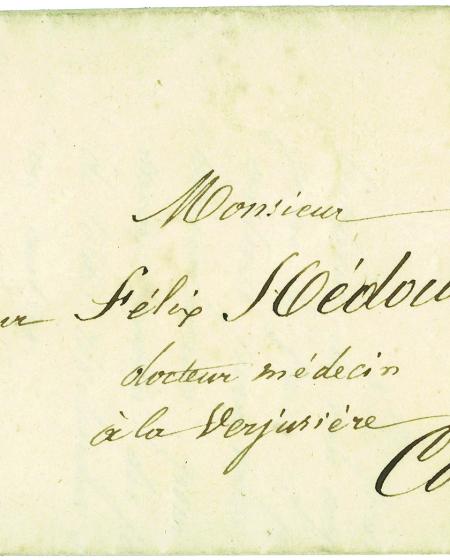 Monsieur
ur Félix Hédou
docteur médecin
à la Verjusiére
Co